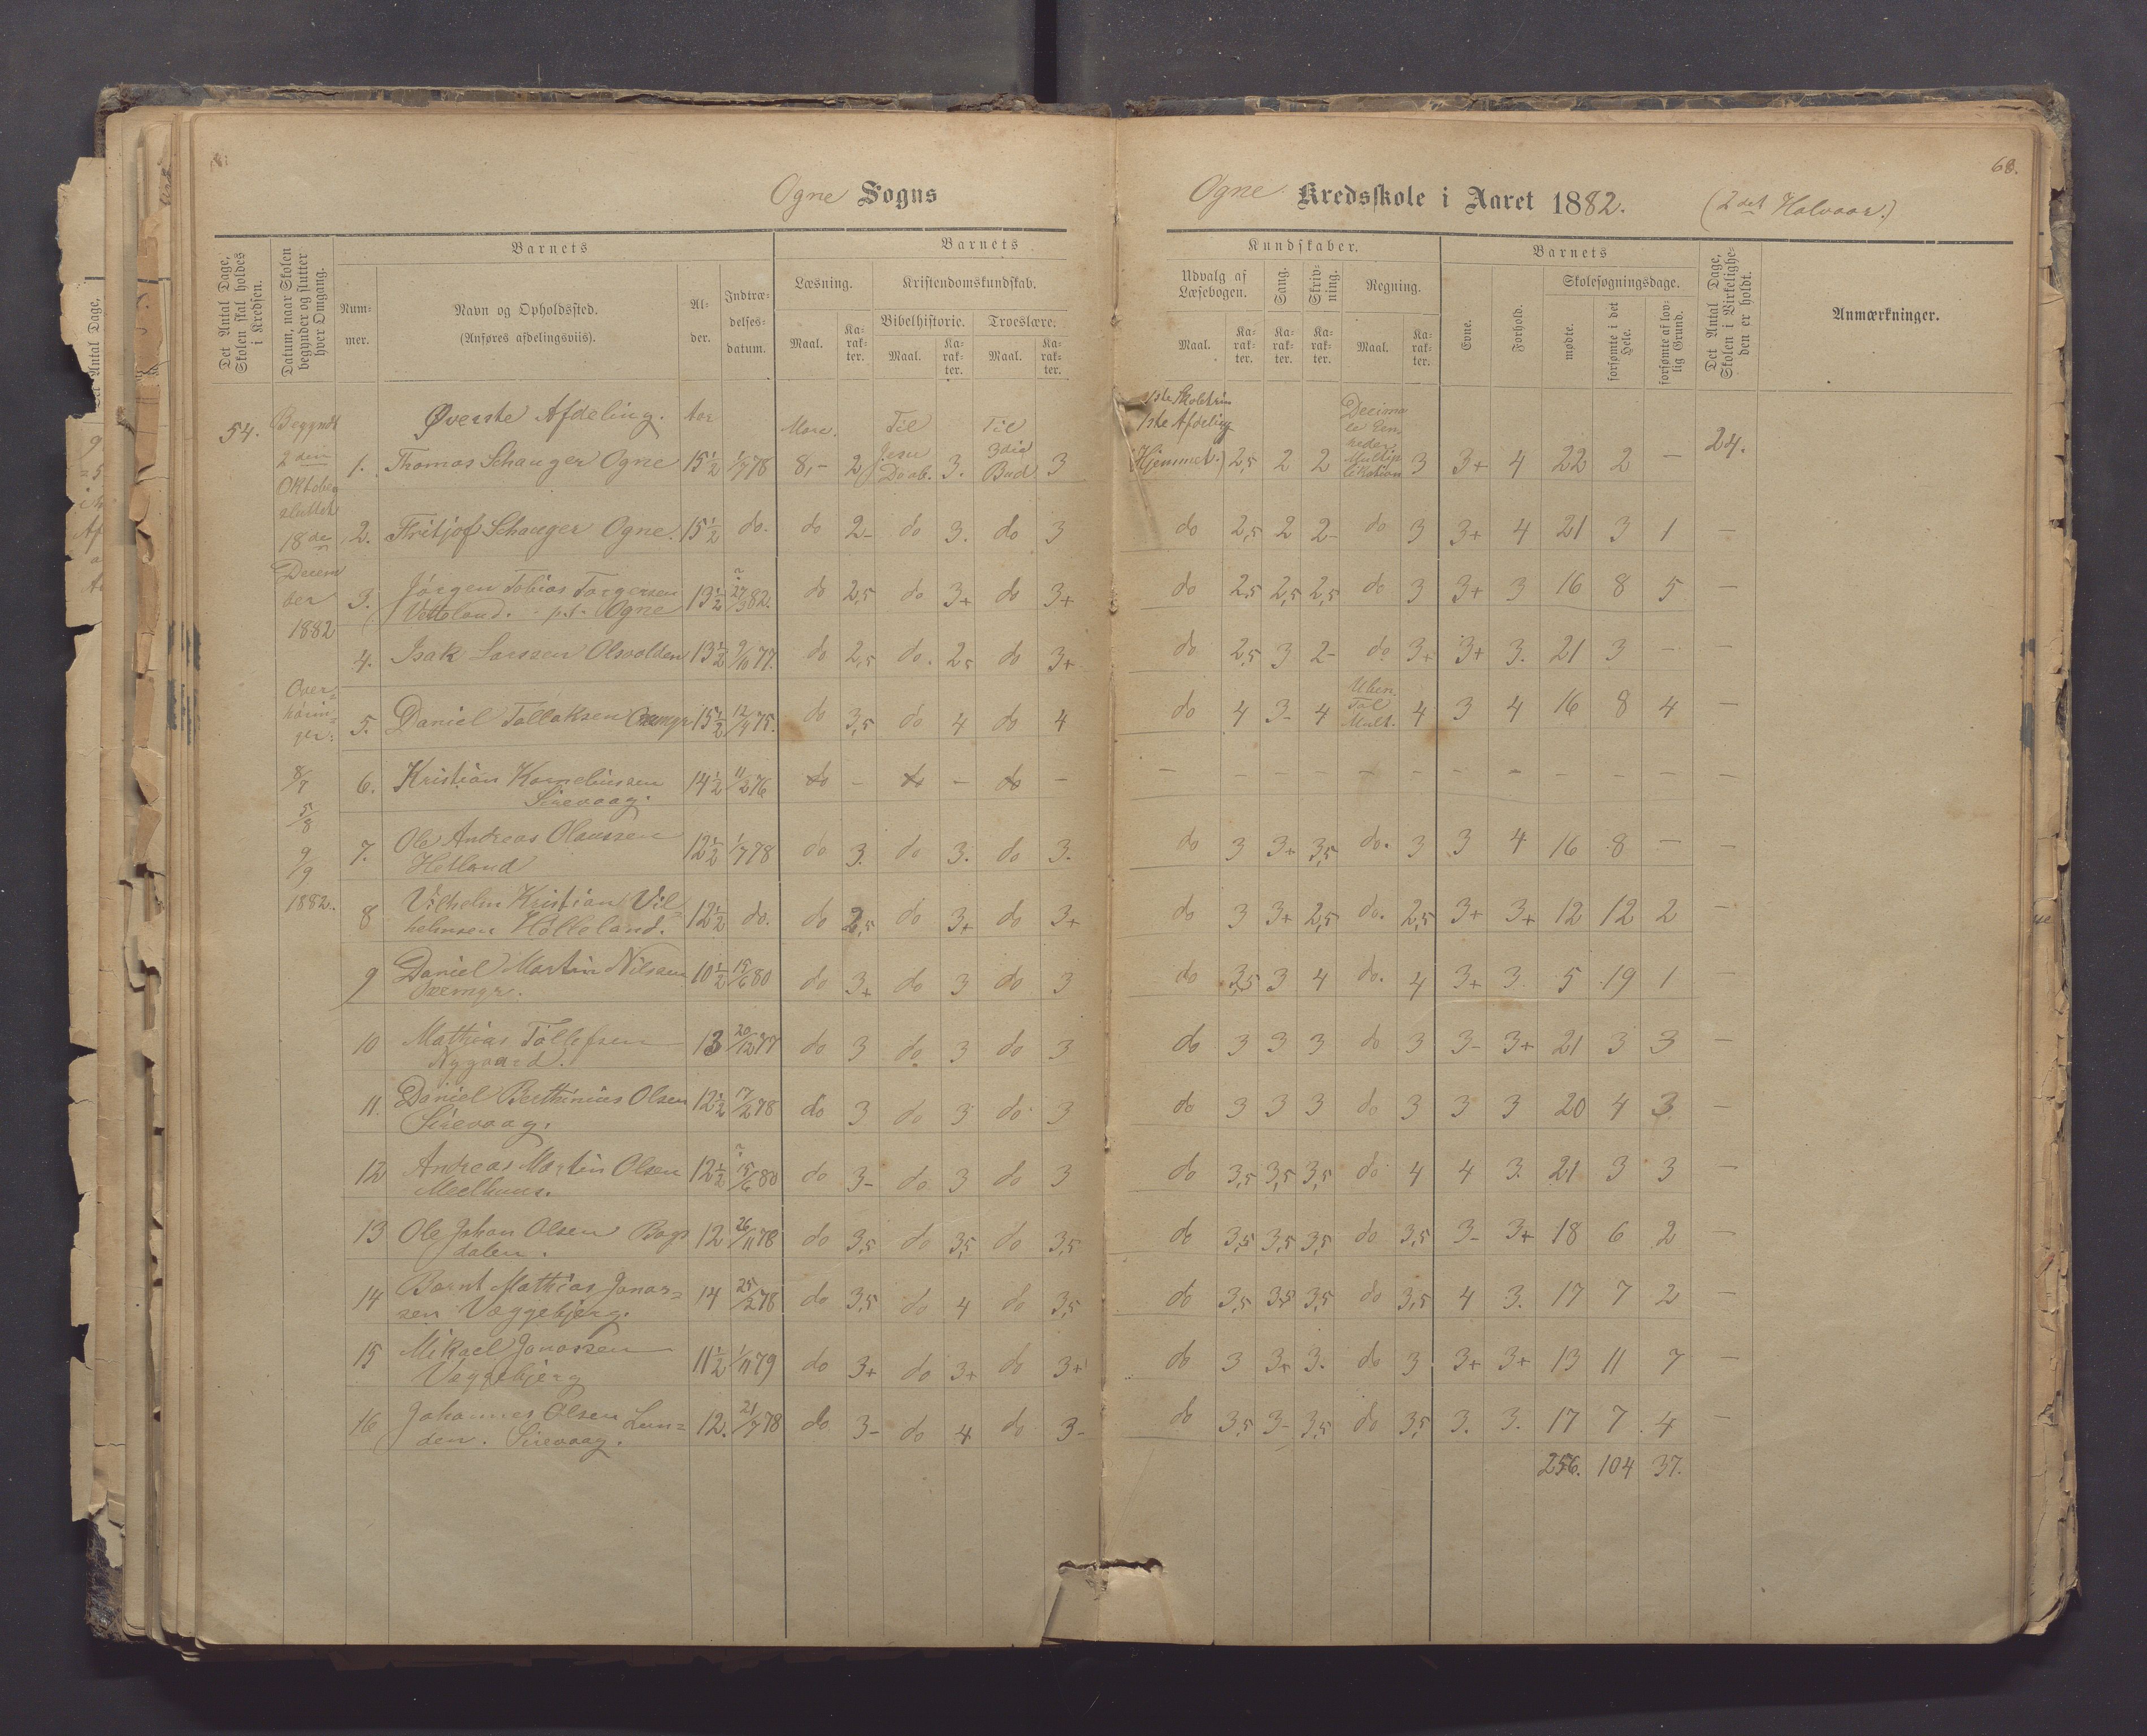 68.
Ogne Sogns
Ogne Kredsskole i Aaret 1882. (2det Halvaar.)
Det Antal Dage, Skolen skal holdes i Kredsen.
Datum, naar Skolen begynder og slutter hver Omgang.
Barnets
Num-
mer.
Navn og Opholdssted.
(Anføres afdelingsviis).
Al-
der.
Indtræ-
delses-
datum.
Barnets
Læsning.
Kristendomskundskab.
Bibelhistorie. Troeslære.
Maal. Ka-rak-ter. Maal. Ka-rak-ter. Maal. Ka-rak-ter.
Kundskaber.
Udvalg af Læsebogen.
Sang.
Skriv-ning.
Regning.
Maal. Ka-rak-ter. Ka-rak-ter. Ka-rak-ter. Maal. Ka-rak-ter.
Barnets
Evne.
Forhold.
Skolesøgningsdage.
mødte.
forsømte i det Hele.
forsømte af lov-lig Grund.
Det Antal Dage, Skolen i Virkelighe-den er holdt.
Anmærkninger.
54.
Begyndt
2den
Oktober
sluttet
18de
Decem
ber
1882
Over=
hørin=
ger:
8/7
5/8
9/9
1882.
Øverste Afdeling. Aar
1ste Skoletrin
1ste Afdeling
1. Thomas Schanger Ogne 15½ 1/7 78 8,- 2 Til Jesu Daab. 3. Til 3die Bud. 3 (Hjemmet.) 2,5 2 2 3 3+ 4 22 2 — 24.
2. Fritjof Schanger Ogne. 15½ do. do 2- do 3. do 3 do 2,5 2 2- do 3 3+ 4 21 3 1 —
3. Jørgen Tobias Torgersen
Vetteland. p.t. Ogne 13½ 27/3 82. do 2,5 do 3+ do 3+ do 2,5 2,5 2,5 do 3 3+ 3 16 8 5 —
4. Isak Larssen Olsvolden 13½ 9/10 77. do 2,5 do. 2,5 do 3+ do 2,5 3 2- do. 3+ 3+ 3. 21 3 — —
5. Daniel Tollaksen 15½ 12/4 75. do 3,5 do 4 do 4 do 4 3- 4 Uben. Tal Mult. 4 3 4 16 8 4 —
6. Kristian Kornelinssen
Sirevaag. 14½ 11/2 76 do — do — do — — — — — — — — — — — — —
7. Ole Andreas Olaussen
Hetland 12½ 1/7 78 do 3. do 3. do 3. do 3 3+ 3,5 do. 3 3 4 16 8 — —
8 Vilhelm Kristian Vil=
helmsen Hølleland. 12½ do. do 2,5 do 3+ do 3+ do 3 3+ 2,5 do. 2,5 3+ 3+ 12 12 2 —
9 Daniel Martin Nilsen 10½ 15/6 80 do 3+ do 3 do 3 do 3,5 3 4 do. 4 3+ 3. 5 19 1 —
10 Mathias Tollefsen
Nygaard. 13 20/12 77 do 3 do. 3 do 3 do 3 3 3 do 3 3- 3+ 21 3 3 —
11. Daniel Berthinius Olsen
Sirevaag. 12½ 17/2 78 do 3 do 3 do 3 do 3 3 3 do 3 3 3 20 4 3 —
12 Andreas Martin Olsen
Meelhuus. 12½ 15/6 80 do 3- do 3 do 3 do 3,5 3,5 3,5 do 4 4 3. 21 3 3 —
13 Ole Johan Olsen Bogs
dalen. 12 26/11 78 do 3,5 do 3,5 do 3,5 do 3,5 3,5 3,5 do 3,5 3- 3+ 18 6 2 —
14 Bernt Mathias Jonas=
sen Væggebjerg. 14 25/2 78 do 3,5 do 4 do 3,5 do 3,5 3,5 3,5 do 3,5 4 3. 17 7 2 —
15 Mikael Jonassen
Væggebjerg 11½ 1/11 79 do 3+ do 3+ do 3+ do 3 3+ 3. do 3 3+ 3+ 13 11 7 —
16 Johannes Olsen Lun=
den. Sirevaag. 12. 21/7 78 do 3- do 4 do 3- do 3,5 3- 3,5 do 3,5 3. 3. 17 7 4 —
256. 104 37.